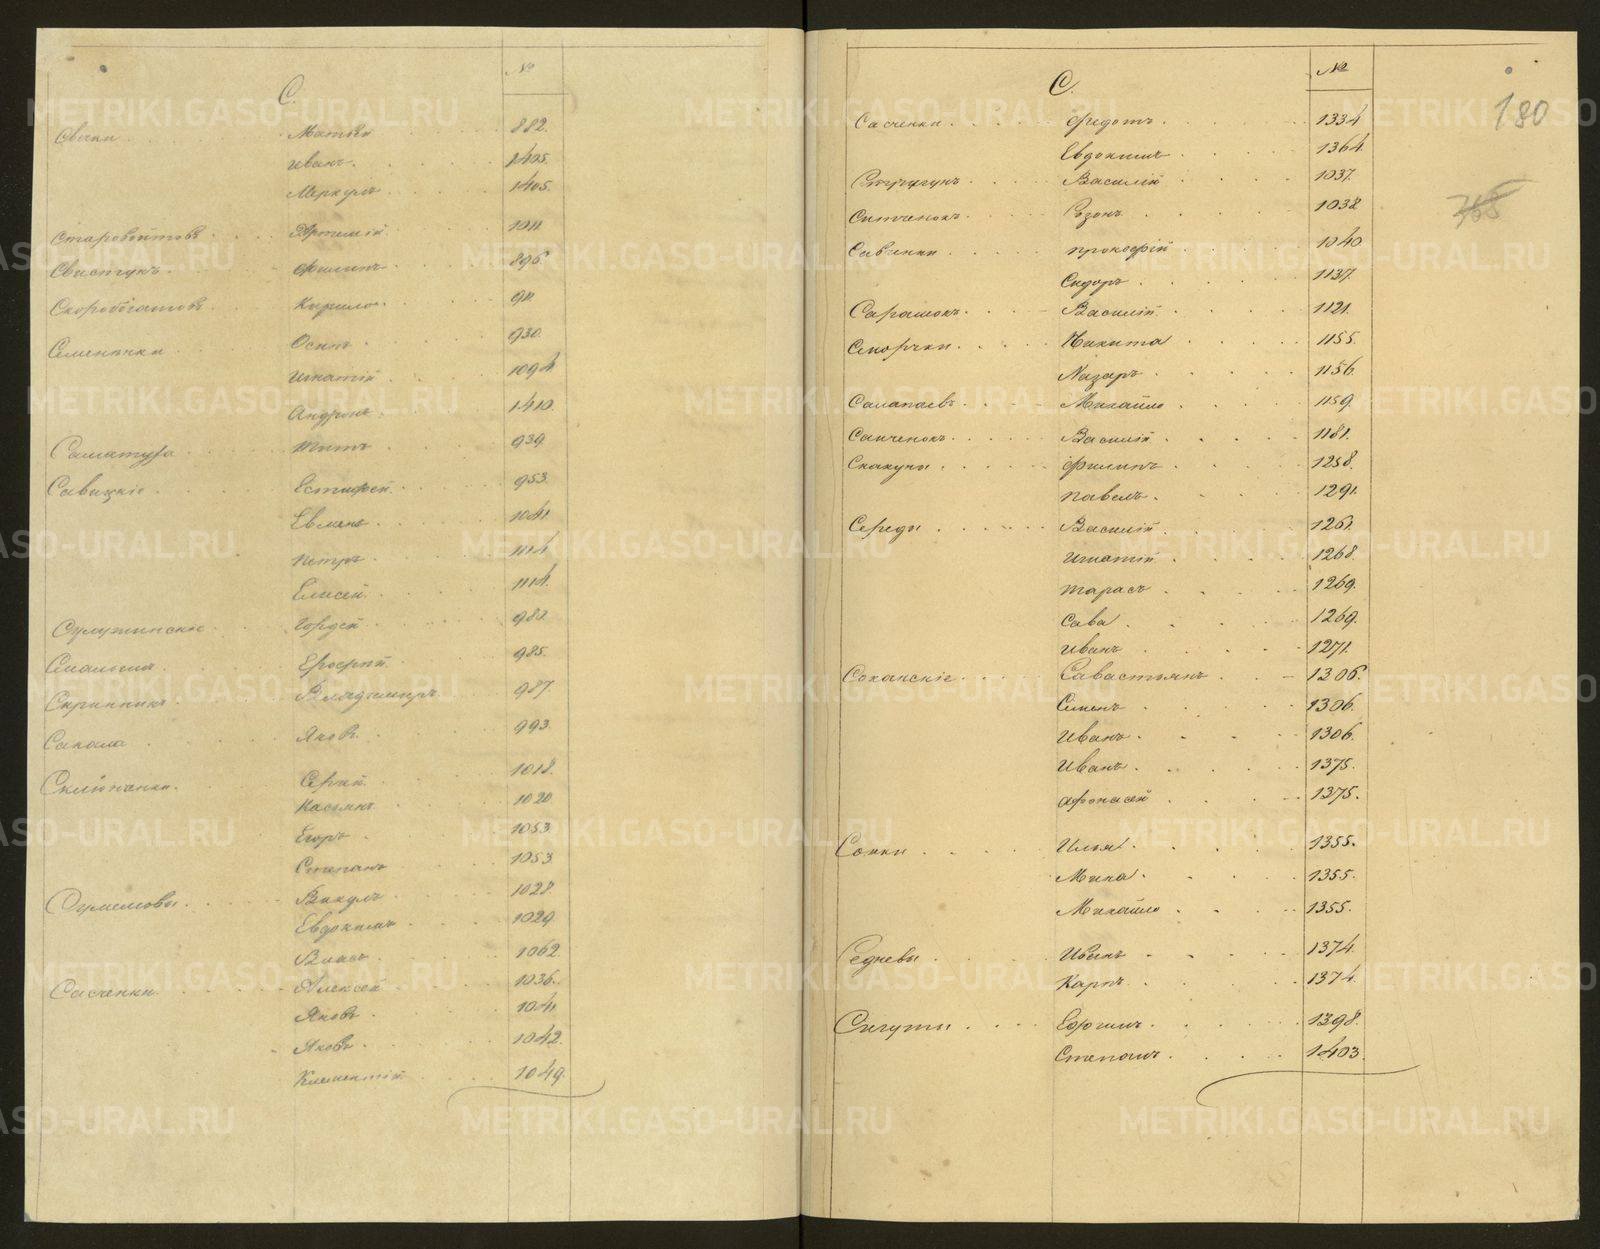 С.
№
Матвѣй 882.
Иванъ. 1405.
Меркулъ 1405.
Старовойтовъ Артемій 1011.
Свистунъ. Филипъ 896.
Скоробогатовъ Кирило. 911.
Семенъки Осипъ 930.
Игнатій 1094
Андронъ. 1410.
Саматуга Титъ 939.
Савицкіе Естифей. 953.
Евменъ 1041.
Петръ 1114
Елисей. 1114.
Гордей 982.
Ерофей 985.
Скрипникъ. Владимиръ. 987.
Сакала Яковъ. 993.
Сергей 1018.
Касьянъ 1020
Егоръ 1053.
Степанъ 1053.
Викулъ 1028
Евдокимъ 1029
Власъ 1062.
Сасченки. Алексей 1036.
Яковъ 1041
Яковъ 1042.
Климентій 1049.
С.
№
180
768
Сасченки Федотъ 1334
Евдокимъ 1364.
Василій 1037.
Ситченокъ. 1038
Савенки Прокофій 1040
Сидоръ. 1137.
Сарашокъ. Василій. 1121.
Сморчки. Никита 1155.
Назаръ 1156.
Салапаевъ. Михайло 1159.
Санченокъ. Василій 1181.
Скакуны Филипъ 1258.
Павелъ. 1291.
Середы Василій 1261.
Игнатій 1268.
Тарасъ 1269.
Сава 1269.
Иванъ 1271.
Соханскіе Савастьянъ 1306.
Семенъ 1306.
Иванъ. 1306.
Иванъ. 1375.
Афонасей 1375.
Сопки Илья. 1355.
Мина. 1355.
Михайло 1355.
Седневы Иванъ 1374.
Карпъ. 1374
Сигуты Ефимъ. 1398.
Степанъ. 1403.
METRIKI.GASO-URAL.RU